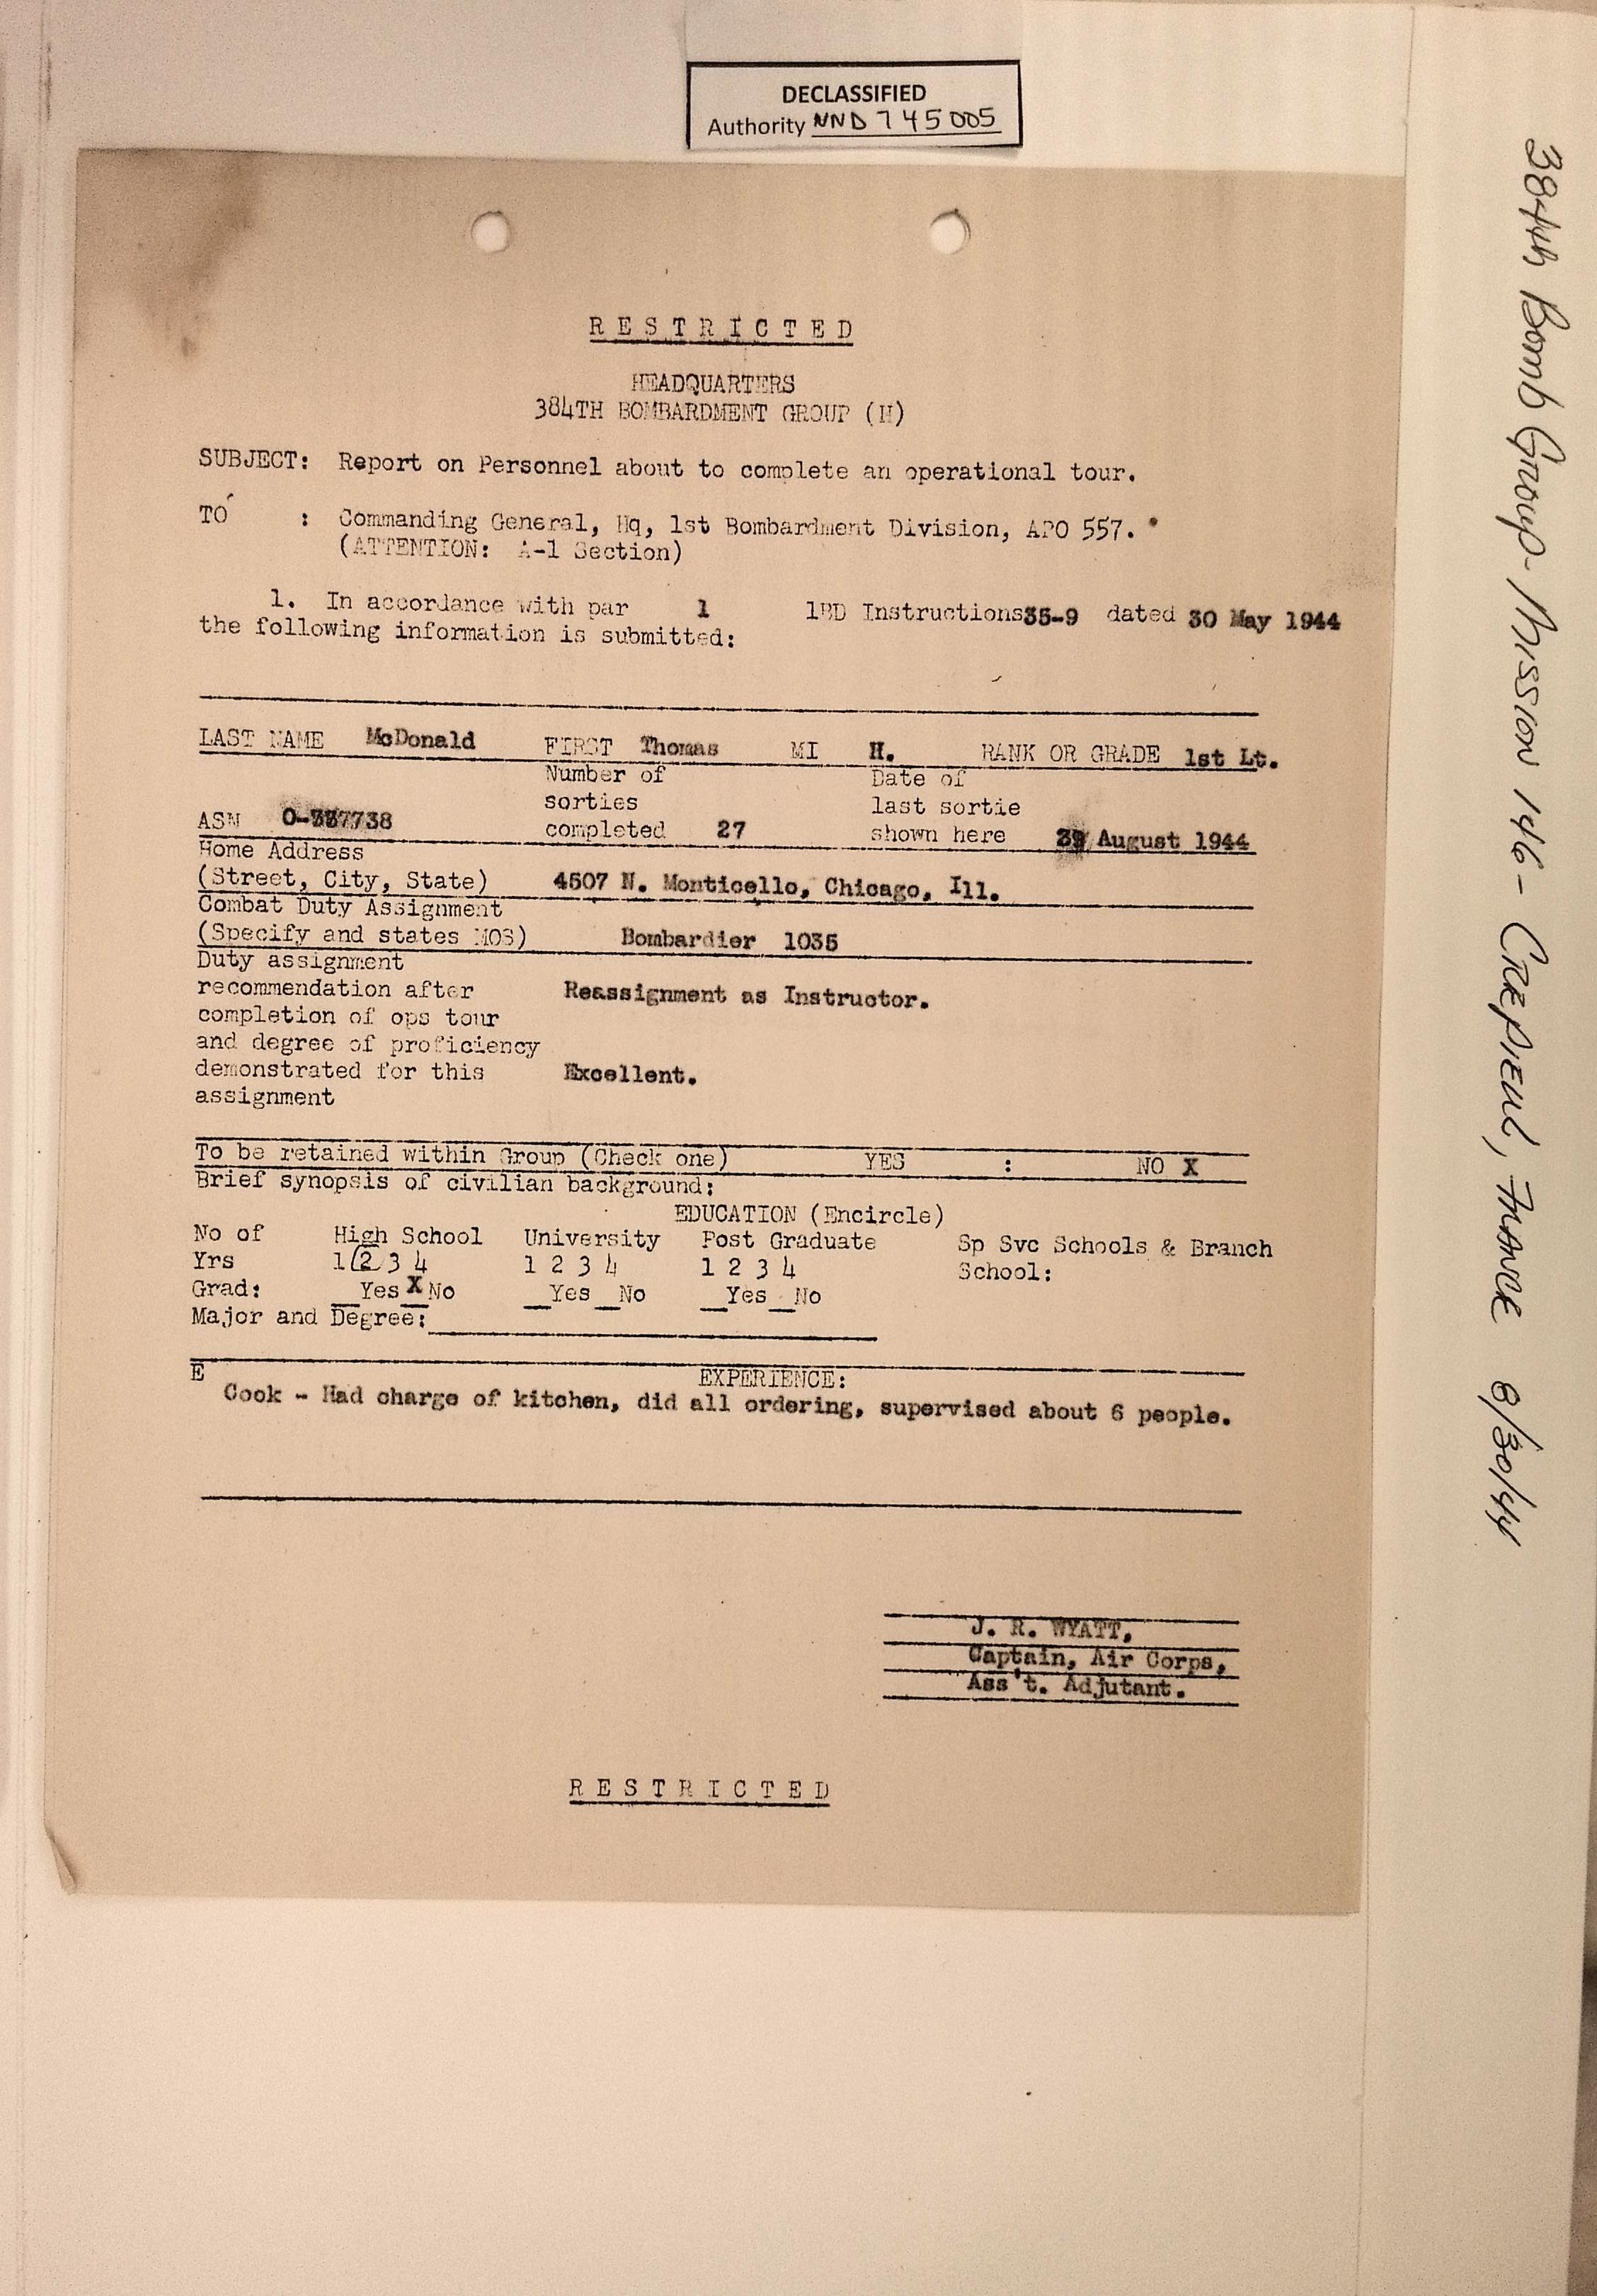 DECLASSIFIED
Authority NND 745005
RESTRICTED
HEADQUARTERS
384TH BOMBARDMENT GROUP (H)
SUBJECT: Report on Personnel about to complete an operational tour.
TO : Commanding General, Hq, 1st Bombardment Division, APO 557.
(ATTENTION: A-1 Section)
1. In accordance with par 1 1BD Instructions 35-9 dated 30 May 1944
the following information is submitted:
LAST NAME McDonald FIRST Thomas MI H. RANK OR GRADE 1st Lt.
Number of Date of
sorties last sortie
ASN completed 27 shown here August 1944
Home Address
(Street, City, State) 4507 N. Monticello, Chicago, Ill.
Combat Duty Assignment
(Specify and states MOS) Bombardier 1035
Duty assignment
recommendation after Reassignment as Instructor.
completion of ops tour
and degree of proficiency
demonstrated for this Excellent.
assignment
To be retained within Group (Check one) YES : NO X
Brief synopsis of civilian background:
EDUCATION (Encircle)
No of High School University Post Graduate Sp Svc Schools & Branch
Yrs 1 2 3 4 1 2 3 4 1 2 3 4 School:
Grad: __Yes X No __Yes __No __Yes __No
Major and Degree:
E EXPERIENCE:
Cook - Had charge of kitchen, did all ordering, supervised about 6 people.
J. R. WYATT,
Captain, Air Corps,
Ass't. Adjutant.
RESTRICTED
384th Bomb Group - Mission 146 - CREPIEUL, FRANCE 8/30/44